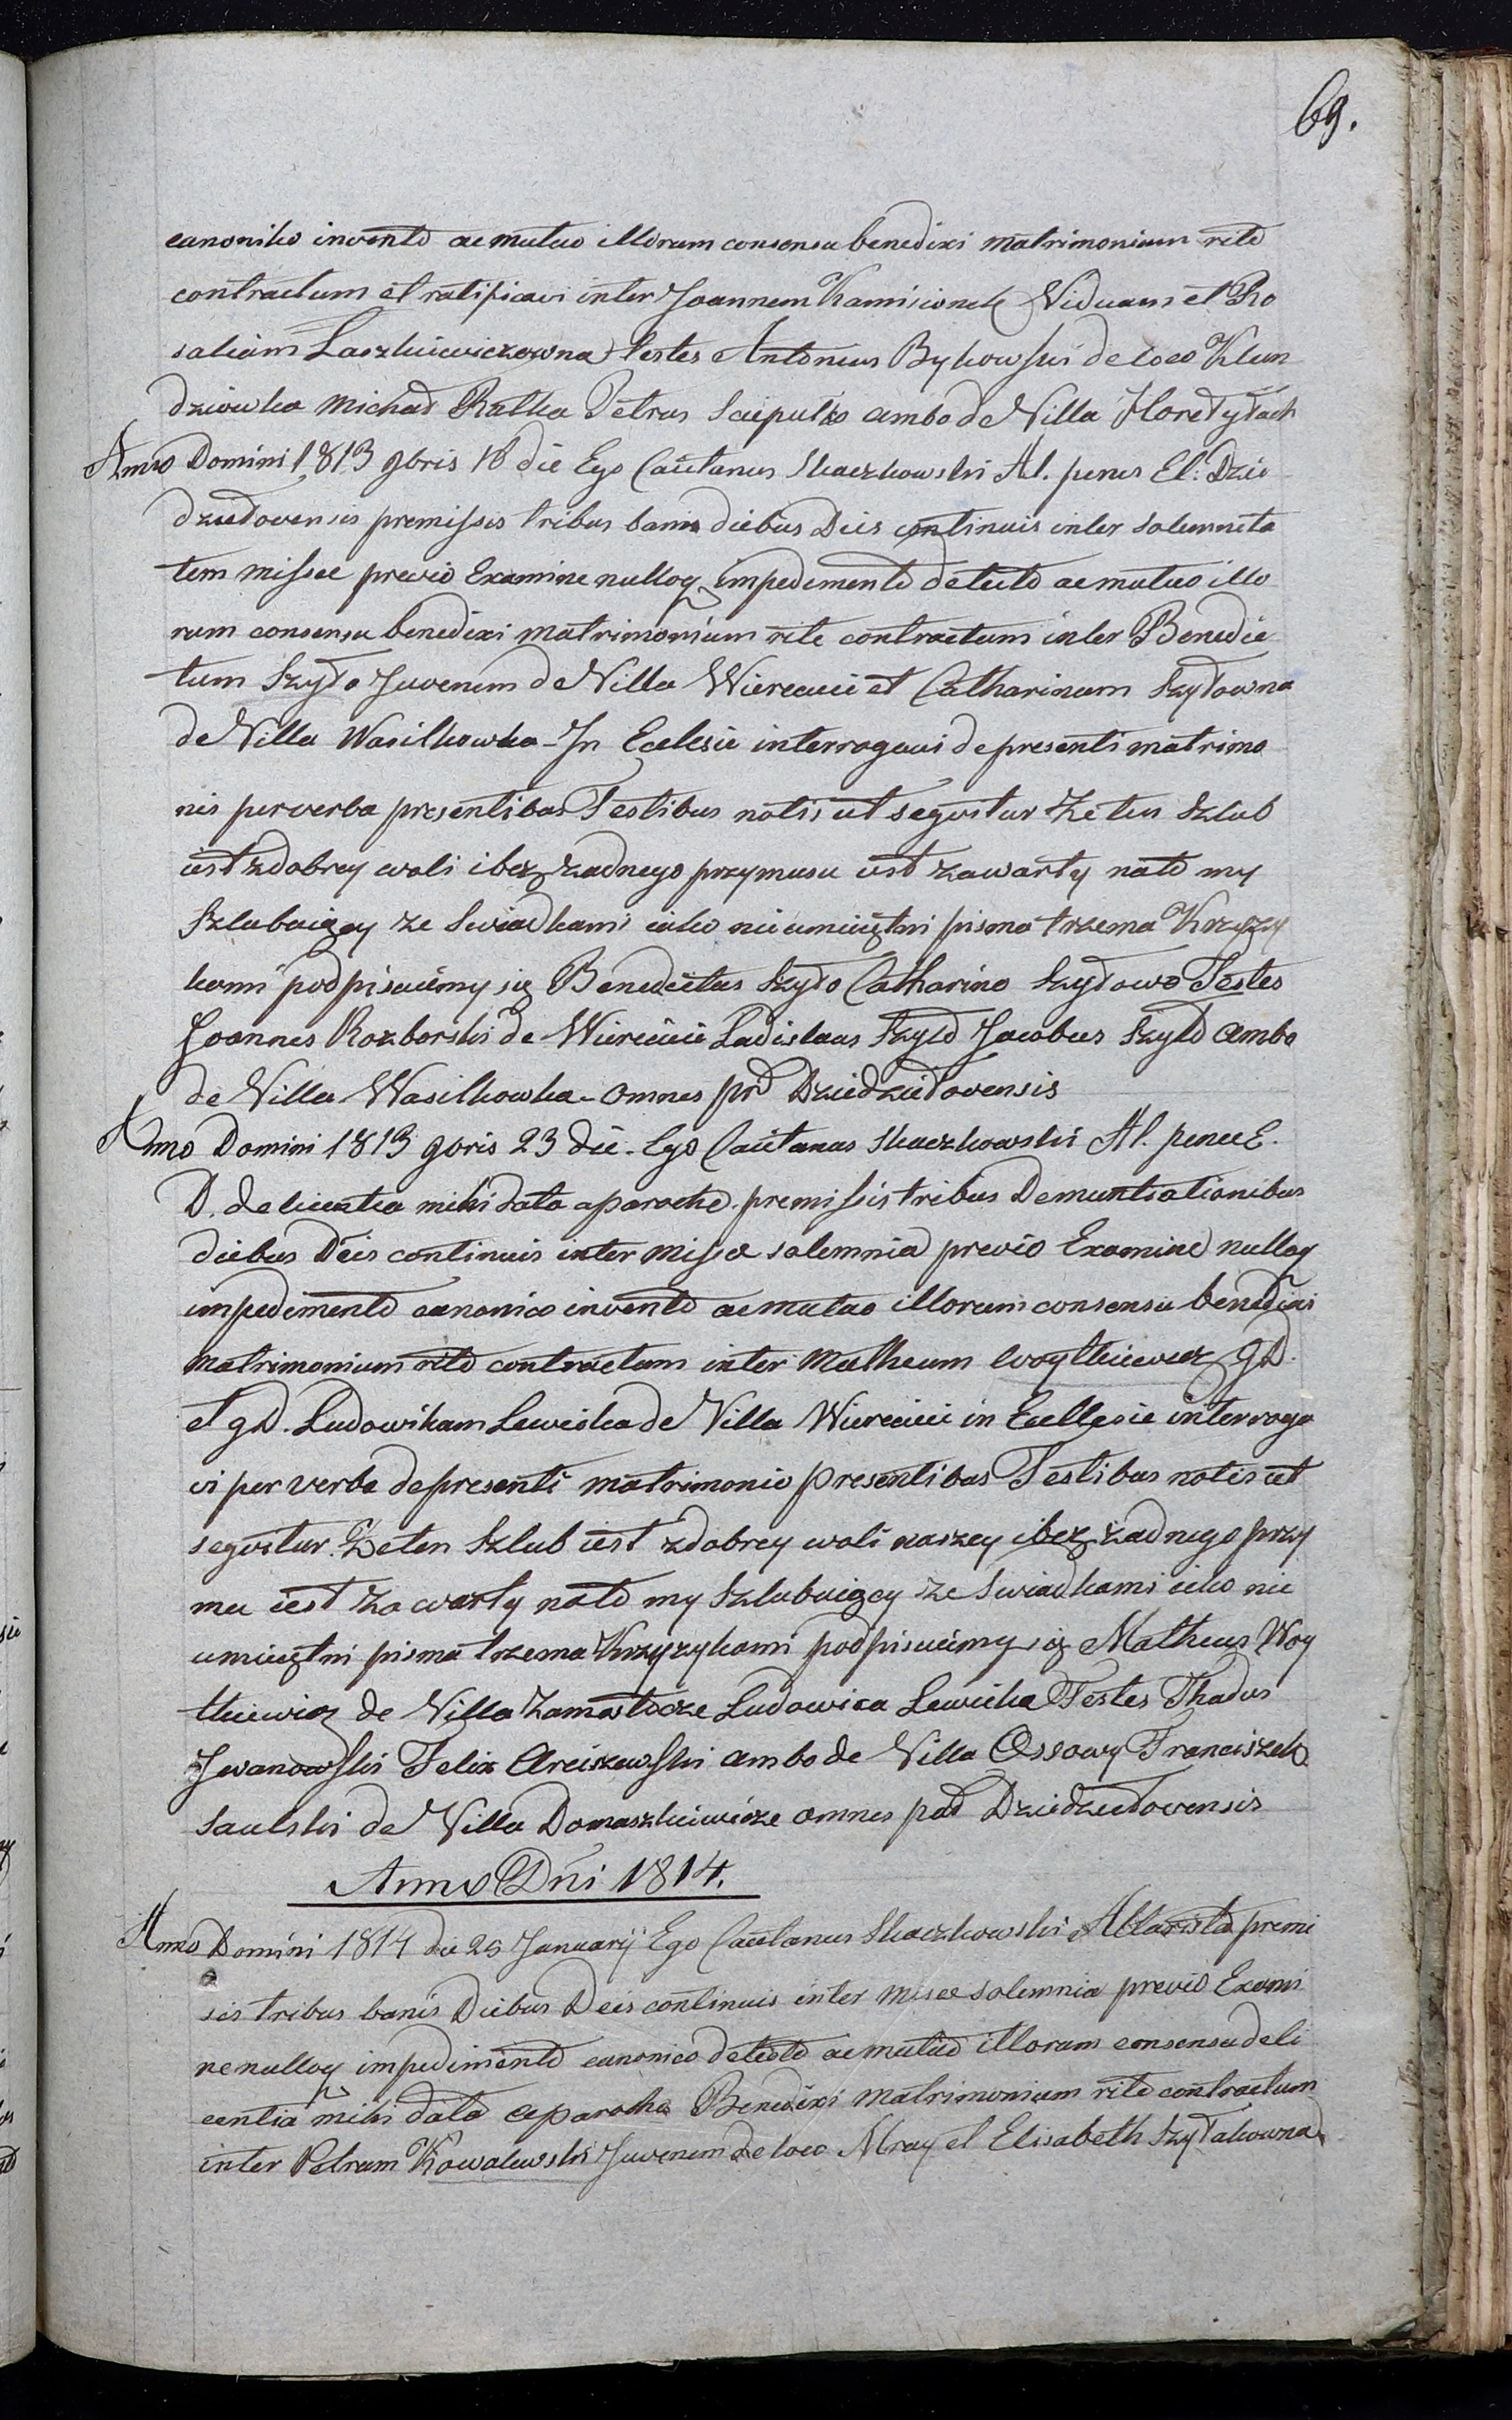 69.
canoniko invento ac mutuo illorum consensu benedixi matrimonium rite
contractum et ratificavi inter Joannem Kamisionek Viduum et Ro
saliam Laszkiewiczowna testes Antonius Bykowski de loco Klun
dziuwka Michał Ratka Petrus Sciepulko ambo de Villa Horełytach
Anno Domini 1813 9bris 18 die Ego Caietanus Skaczkowski Al. penes El: Dzie
dziełovensis premissis tribus banis diebus Dies continuis inter solemnita
tem missae previo Examine nulloq impedimento detecto ac mutuo illo
rum consensu benedixi matrimonium rite contractum inter Benedic
tum Szyło Juvenem de Villa Wiereicie et Catharinam Szyłowna
de Villa Wasilkowka - In Eclesie interrogavi de presenti matrimo
nis per verba presentibus Testibus notis ut seqvitur Że ten Szlub
iest z dobrey woli i bez żadnego przymusu iest zawarty na to my
Szlubuięcy ze Swiadkami iako nieumieiętni pisma trzema Krzyzy
kami podpisuiemy się Benedictus Szyło Catharina Szyłowa Testes
Joannes Rozborski de Wiereicie Ladislaus Szyło Jacobus Szyło ambo
de Villa Wasilkowka - omnes prd Dziedziełovensis
Anno Domini 1813 9bris 23 die - Ego Caietanus Skaczkowski Al. penes E.
D. de licentia mihi data a paroche premissis tribus Demuntiationibus
diebus Deis continuis inter missae solemnia previo Examine nulloq
impedimento canonico invento ac mutuo illorum consensu benedixi
matrimonium rite contractum inter Matheum Woytkiewicz GD.
et GD. Ludowikam Lewicka de Villa Wiereicie in Ecellesie interroga
vi per verba de presenti matrimonio presentibus Testibus notis ut
seqvitur. Że ten Szlub iest z dobrey woli naszey i bez żadnego przy
mu iest zawarty na to my Szlubuięcy ze Swiadkami iako nie
umieiętni pisma trzema Krzyzykami podpisuiemy się Matheus Woy
tkiewicz de Villa Zamostocze Ludowica Lewicka Testes Thadus
Jwanowski Felix Arciszewski ambo de Villa Ossowy Franciszek
Saulski de Villa Domaszkiewicze omnes prd Dziedziełovensis
Anno Dni 1814.
Anno Domini 1814 die 25 Januarÿ Ego Caietanus Skaczkowski Altarista premi
sis tribus banis Diebus Deis continuis inter misse solemnia previo Exami
ne nulloq impedimento canonico detecto ac mutuo illorum consensu de li
centia mihi data a parocho Benedixi matrimonium rite contractum
inter Petrum Kowalewski Juvenem de loco Mray et Elisabeth Szyłakowna